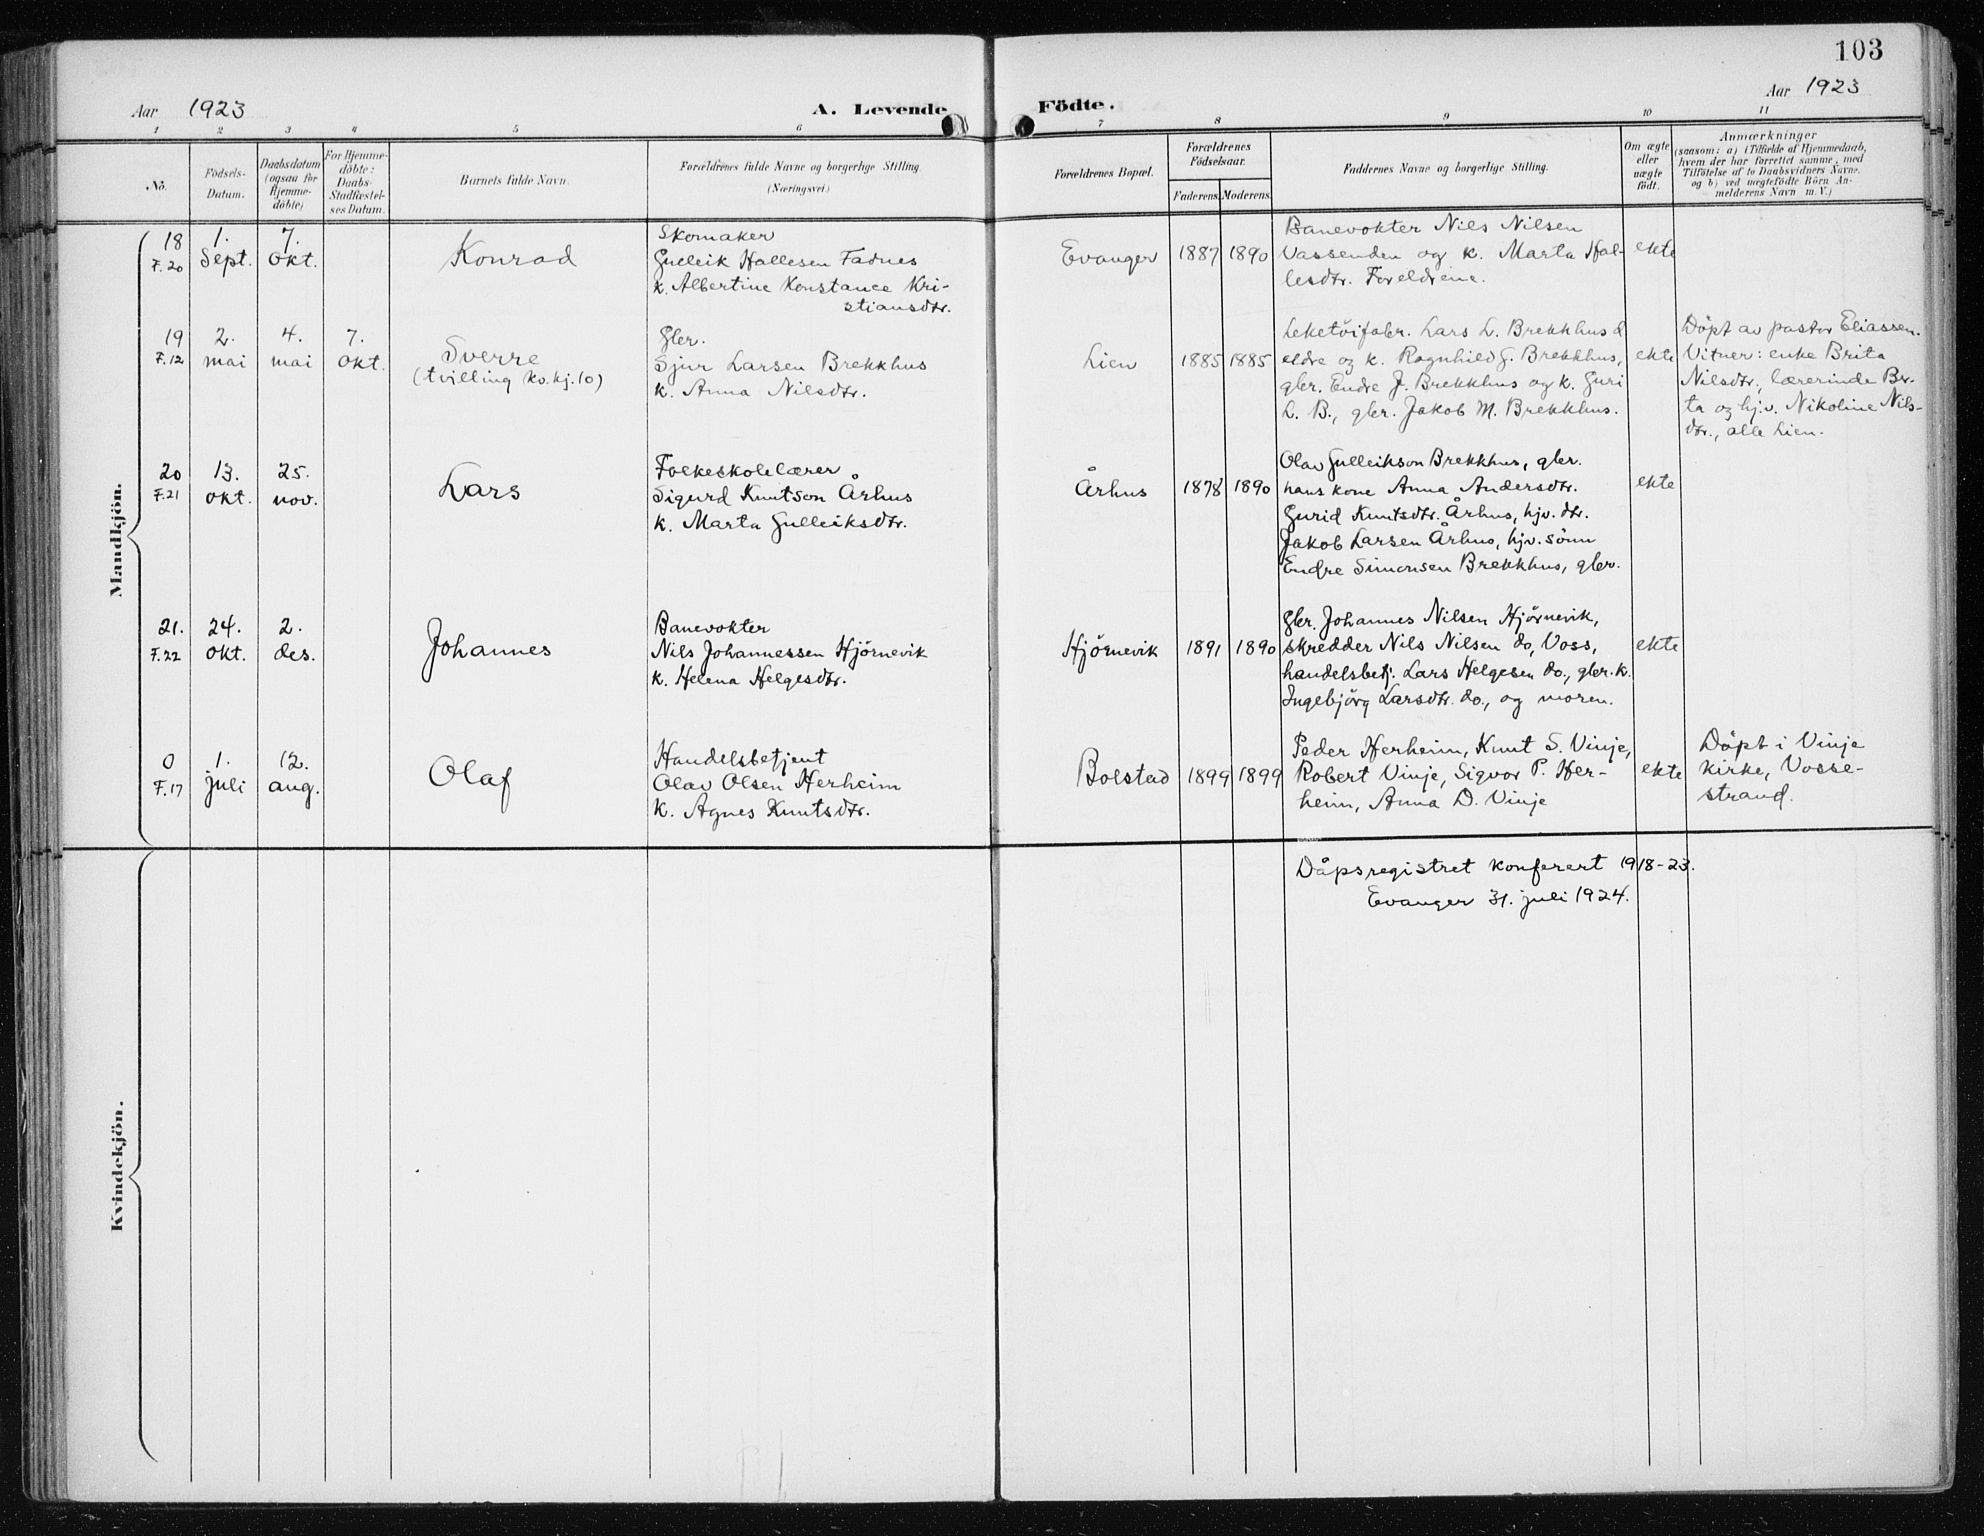 103
Aar 1923 A. Levende Födte. Aar 1923
1 2 3 4 5 6 7 8 9 10 11
No.
Födsels-
Datum.
Daabsdatum
(ogsaa for
Hjemme-
döbte)
For Hjemme-
döbte:
Daabs-
Stadfæstel-
ses Datum.
Barnets fulde Navn.
Forældrenes fulde Navne og borgerlige Stilling.
(Næringsvei.)
Forældrenes Bopæl.
Forældrenes
Födselsaar.
Faderens. Moderens.
Faddernes Navne og borgerlige Stilling.
Om ægte
eller
uægte
födt.
Anmærkninger
(saasom: a) i Tilfælde af Hjemmedaab,
hvem der har forrettet samme, med
Tilföielse af to Daabsvidners Navne,
og b) ved uægtefödte Börn An-
melderens Navn m. V.)
Mandkjön.
18
F.20
1.
Sept.
7.
Okt.
Konrad
Skomaker
Gulleik Hallesen Fadnes
k. Albertine Konstance Kri-
stiansdtr.
Evanger
1887 1890
Banevokter Nils Nilsen
Vassenden og k. Marta Hal-
lesdtr. Foreldrene.
ekte
19
F.12
2.
mai
4.
mai
7.
Okt.
Sverre
(tvilling kv.kj.10)
Gbr.
Sjur Larsen Brekkhus
k. Anna Nilsdtr.
Lien
1885 1885
Leketöifabr. Lars L. Brekkhus d.
eldre og k. Ragnhild G. Brekkhus,
gbr. Endre J. Brekkhus og k. Guri
L. B., gbr. Jakob M. Brekkhus.
ekte
Döpt av pastor Eliassen.
Vitner: enke Brita
Nilsdtr., lærerinde Br-
ta og hj.v. Nikoline Nils-
dtr., alle Lien.
20
F.21
13.
Okt.
25.
nov.
Lars
Folkeskolelærer
Sigurd Knutson Århus
k. Marta Gulleiksdtr.
Århus
1878 1890
Olav Gulleikson Brekkhus, gbr.
hans kone Anna Andersdtr.
Gurid Knutsdtr. Århus, hjv. dtr.
Jakob Larsen Århus, hjv. sönn
Endre Simonsen Brekkhus, gbr.
ekte
21.
F.22
24.
Okt.
2.
des.
Johannes
Banevokter
Nils Johannessen Hjörnevik
k. Helena Helgesdtr.
Hjörnevik
1891 1890
Gbr. Johannes Nilsen Hjörnevik,
skredder Nils Nilsen do, Voss,
handelsbetj. Lars Helgesen do., gbr. k.
Ingebjörg Larsdtr. do., og moren.
ekte
0
F.17
1.
juli
12.
aug.
Olaf
Handelsbetjent
Olav Olsen Herheim
k. Agnes Knutsdtr.
Bolstad
1899 1899
Peder Herheim, Knut S. Vinje,
Robert Vinje, Sigvor P. Her-
heim, Anna D. Vinje
ekte
Döpt i Vinje
kirke, Vosse-
strand.
Kvindekjön.
Dåpsregistret konferert 1918-23.
Evanger 31. juli 1924.